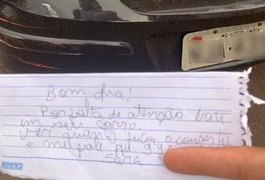 Bom dia!
Por falta de atenção bati
em seu carro.
Ver quanto fica o conserto
e me fale
Sara